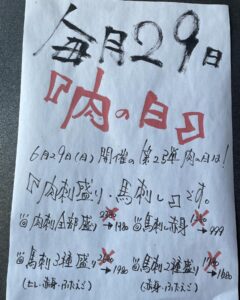 毎月29日
『肉の日』
6月29日(日)開催の第25弾肉の日は!
『肉刺盛り、馬刺し』です。
肉刺全部盛り → 1980 馬刺し赤身 → 999
馬刺3種盛り → 1980 馬刺2種盛り → 1480
(ヒレ・赤身・ふたえご) (赤身・ふたえご)